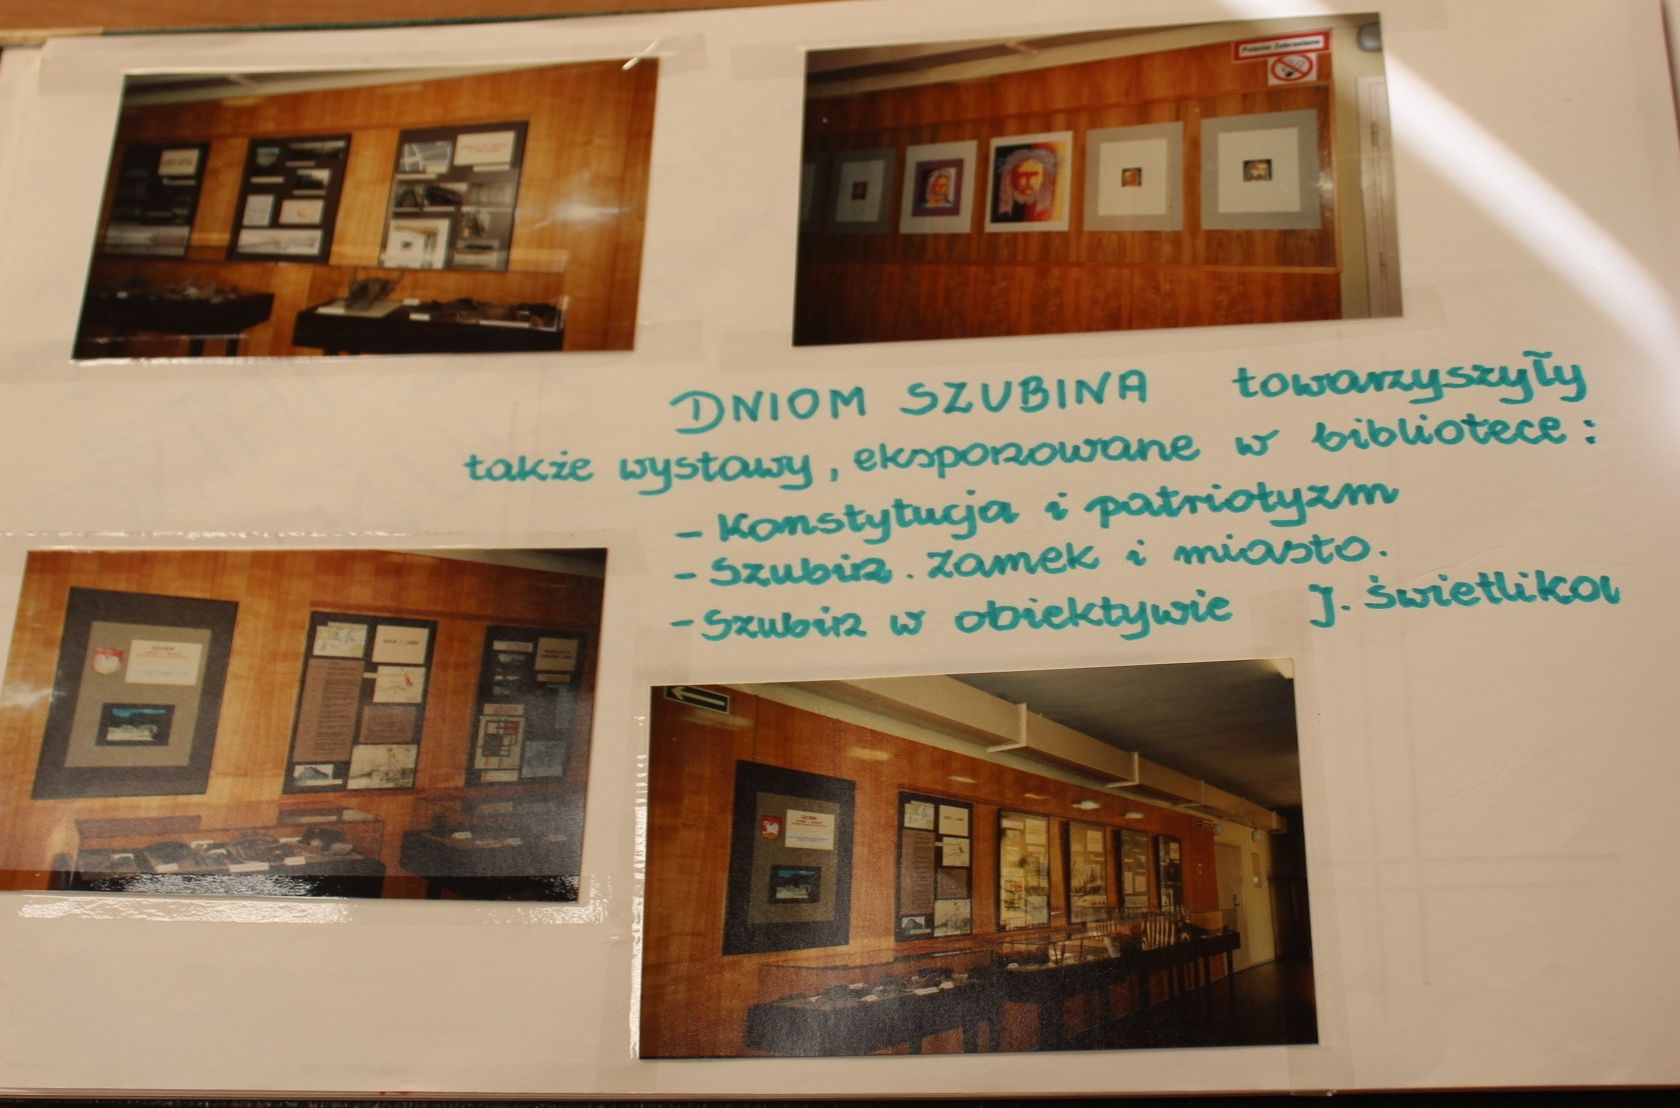 Palenie Zabronione
DNIOM SZUBINA towarzyszyły
także wystawy, eksponowane w bibliotece:
- Konstytucja i patriotyzm
- Szubin. Zamek i miasto.
- Szubin w obiektywie J. Świetlikow